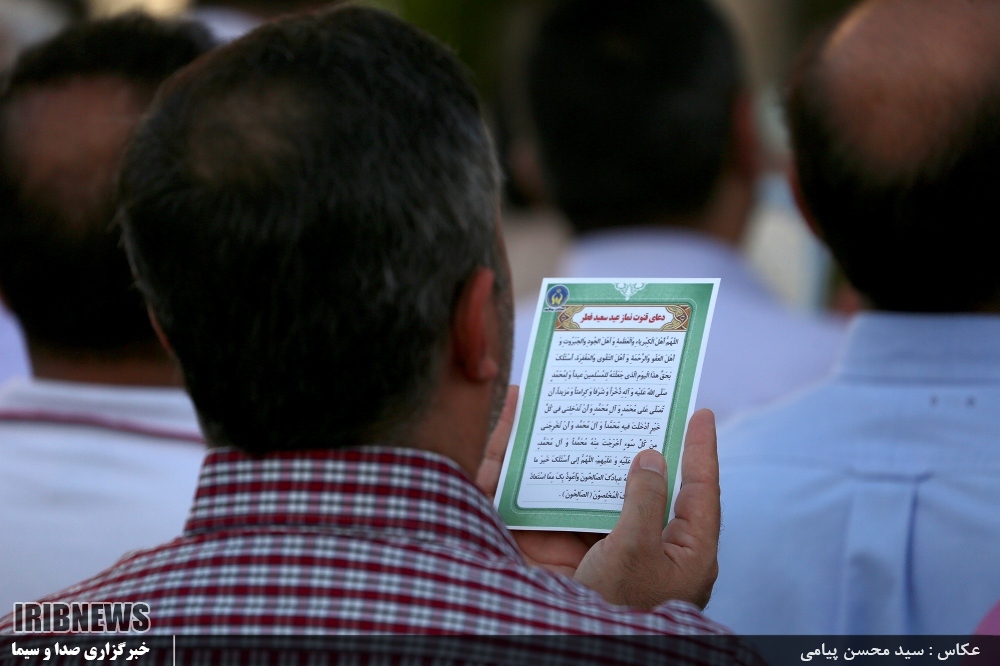 دعای قنوت نماز عید سعید فطر
اللهُمَّ اَهْلَ الْکِبْرِیاءِ وَالْعَظَمَةِ وَ اَهْلَ الْجُودِ وَالْجَبَرُوتِ وَ
اَهْلَ الْعَفْوِ وَالرَّحْمَةِ وَ اَهْلَ التَّقْوی وَالْمَغْفِرَةِ، اَسْئَلُکَ
بِحَقِّ هذَا الْیَوْمِ الَّذی جَعَلْتَهُ لِلْمُسْلِمینَ عیداً وَ لِمُحَمَّدٍ
صَلَّی اللهُ عَلَیْهِ وَ آلِهِ ذُخْراً وَ شَرَفاً وَ کَرامَتاً وَ مَزیداً، اَنْ
تُصَلِّیَ عَلی مُحَمَّدٍ وَ آلِ مُحَمَّدٍ وَ اَنْ تُدْخِلَنی فی کُلِّ
خَیْرٍ اَدْخَلْتَ فیهِ مُحَمَّداً وَ آلَ مُحَمَّدٍ وَ اَنْ تُخْرِجَنی
مِنْ کُلِّ سُوءٍ اَخْرَجْتَ مِنْهُ مُحَمَّداً وَ آلَ مُحَمَّدٍ،
عَلَیْهِ وَ عَلَیْهِمْ، اللهُمَّ اِنّی اَسْئَلُکَ خَیْرَ ما
عِبادُکَ الصّالِحُونَ وَ اَعُوذُ بِکَ مِمَّا اسْتَعاذَ
الْمُخْلِصُونَ (الصّالِحُونَ).
IRIBNEWS
خبرگزاری صدا و سیما
عکاس : سید محسن پیامی